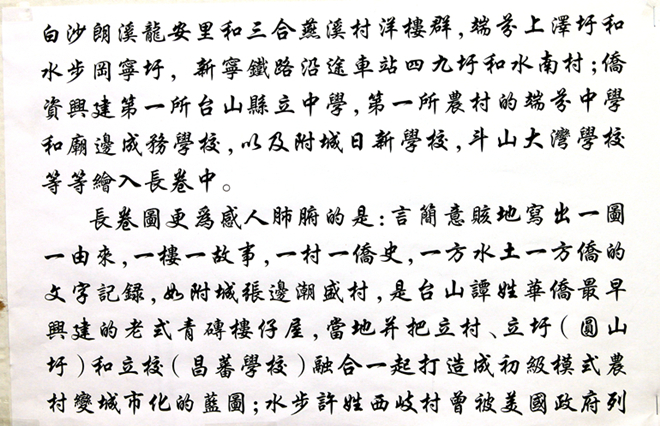 白沙朗溪龍安里和三合燕溪村洋樓群，端芬上澤圩和
水步岡寧圩，新寧鐵路沿途車站四九圩和水南村；僑
資興建第一所台山縣立中學，第一所農村的端芬中學
和廟邊成務學校，以及附城日新學校，斗山大灣學校
等等繪入長卷中。
長卷圖更為感人肺腑的是：言簡意賅地寫出一圖
一由來，一樓一故事，一村一僑史，一方水土一方僑的
文字記録，如附城張邊潮盛村，是台山譚姓華僑最早
興建的老式青磚樓仔屋，當地并把立村、立圩（圓山
圩）和立校（昌蕃學校）融合一起打造成初級模式農
村變城市化的藍圖；水步許姓西岐村曾被美國政府列